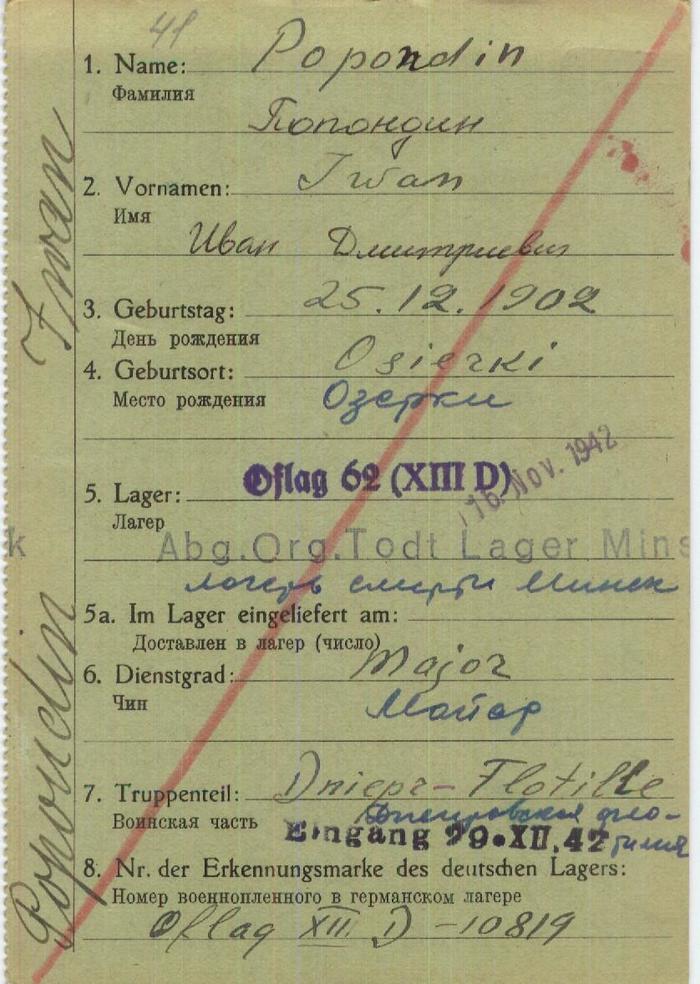 41
1. Name: Popondin
Фамилия
Попондин
2. Vornamen: Iwan
Имя
Иван Дмитриевич
3. Geburtstag: 25.12.1902
День рождения
4. Geburtsort: Osierki
Место рождения Озерки
5. Lager: Oflag 62 (XIII D) 16. Nov. 1942
Лагер
k Abg.Org.Todt Lager Mins
лагерь смерти Минск
5a. Im Lager eingeliefert am:
Доставлен в лагер (число)
6. Dienstgrad: Major
Чин Майор
7. Truppenteil: Dniepr-Flotille
Воинская часть Днепровская фло-
Eingang 29.XII.42 тилия
8. Nr. der Erkennungsmarke des deutschen Lagers:
Номер военнопленного в германском лагере
Oflag XIII D -10819
Popondin Iwan